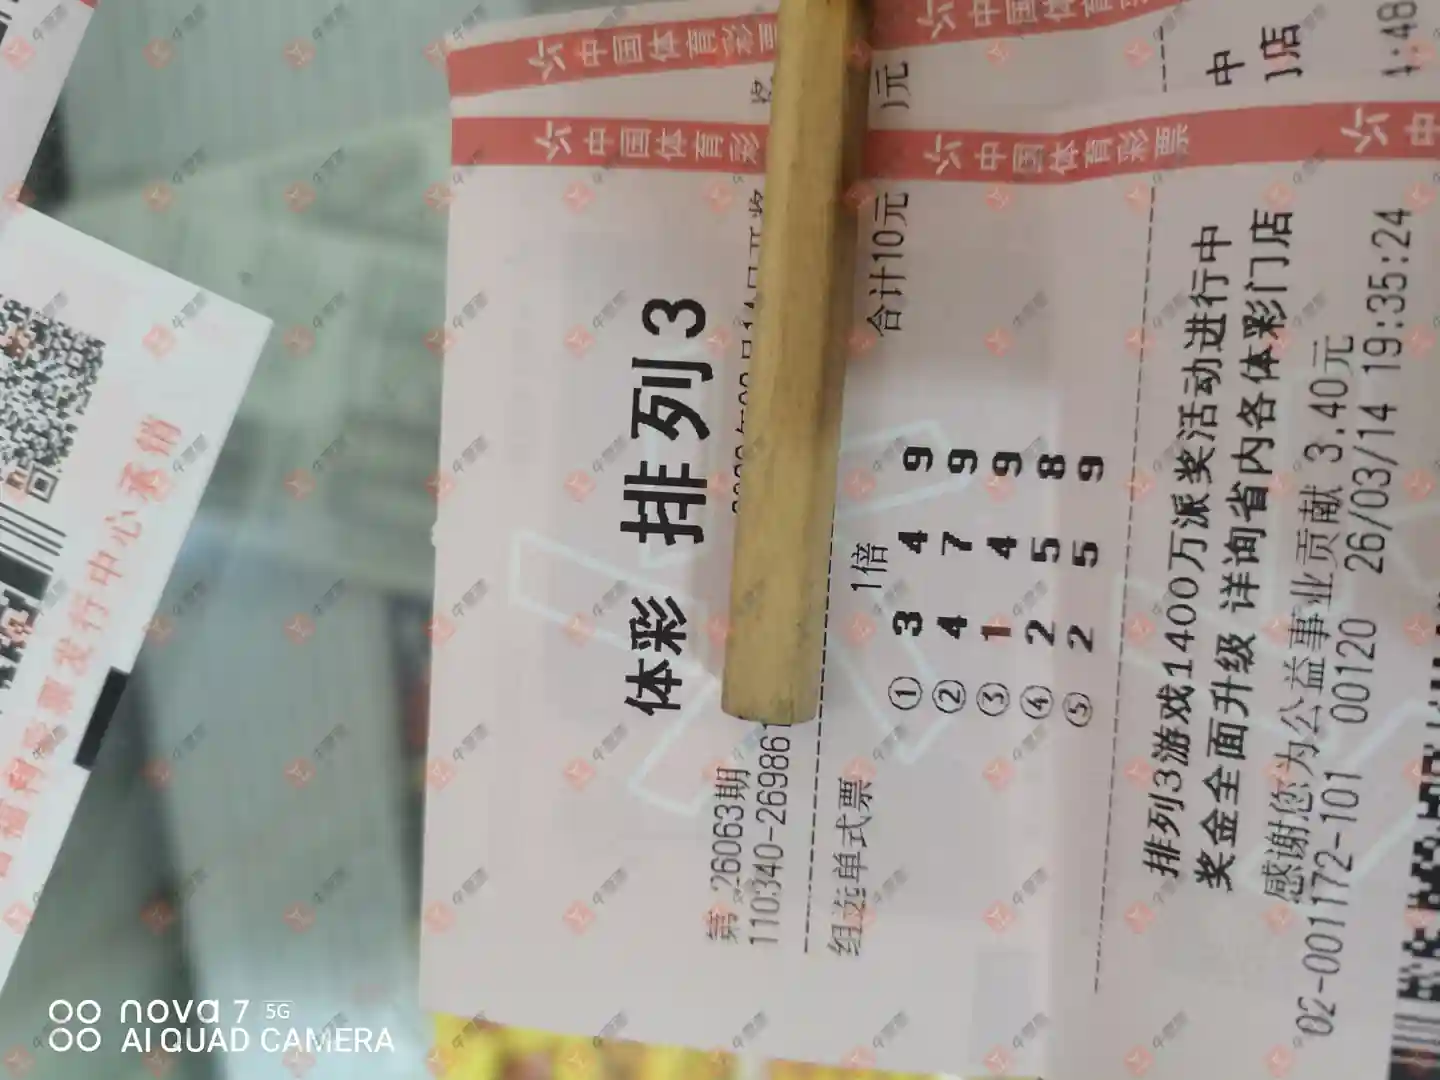 中国体育彩票
中国体育彩
中国体育彩票
体彩 排列3
第 26063期
110340-26986
组选单式票 1倍 合计10元
① 3 4 9
② 4 7 9
③ 1 4 9
④ 2 5 8
⑤ 2 5 9
排列3游戏1400万派奖活动进行中
奖金全面升级 详询省内各体彩门店
感谢您为公益事业贡献 3.40元
02-001172-101 00120 26/03/14 19:35:24
中
店
元
发行中心承销
nova 7 5G
AI QUAD CAMERA